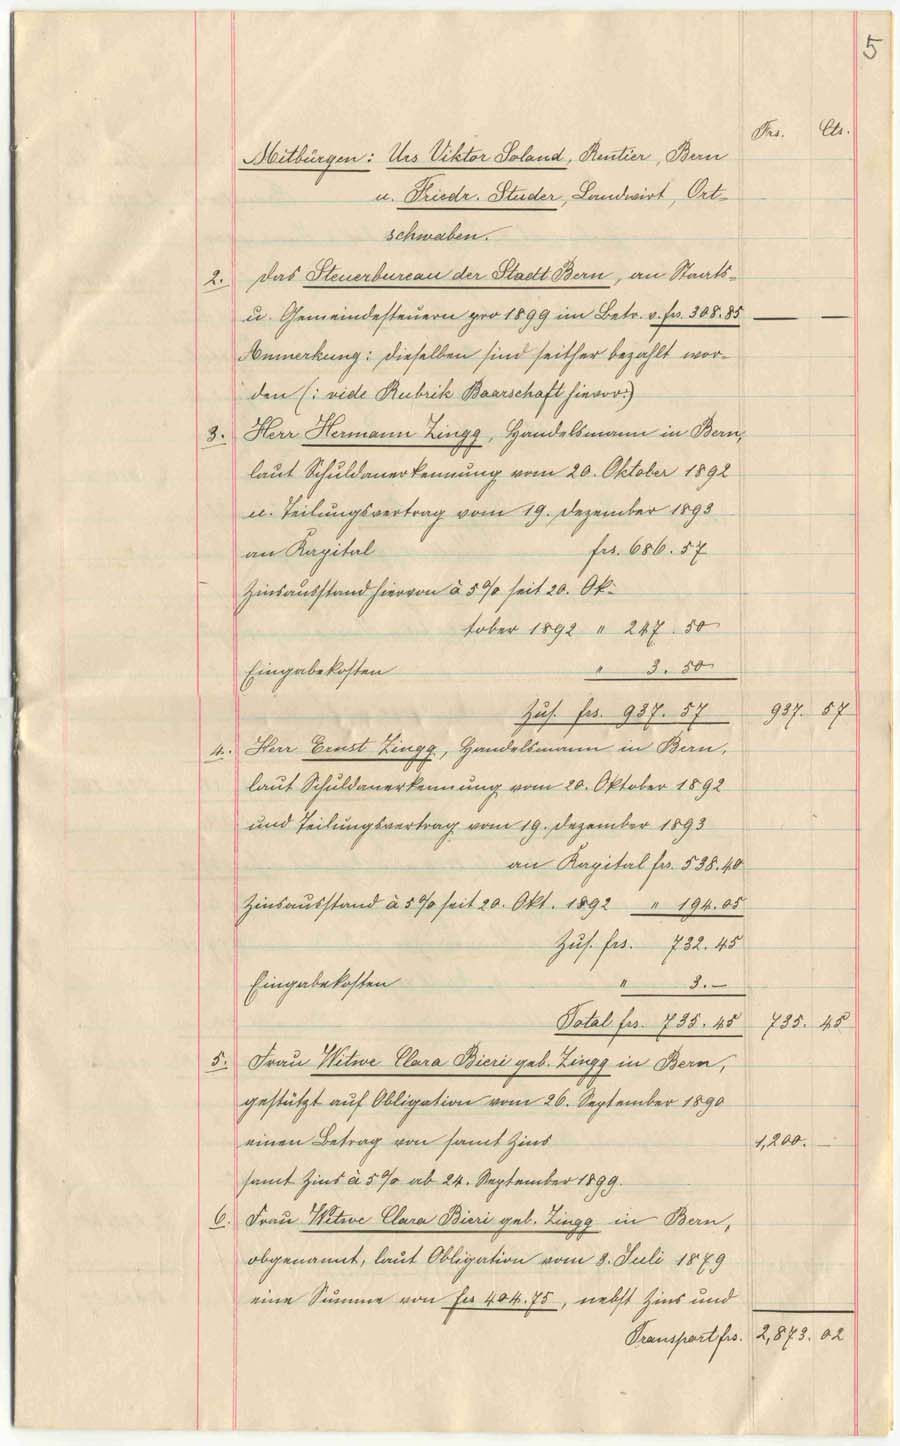 5
Frs. Cts.
Mitbürgen: Urs Viktor Soland, Rentier, Bern
u. Friedr. Studer, Landwirt, Ort-
schwaben.
2. Das Steuerbureau der Stadt Bern, an Staats-
u. Gemeindesteuern pro 1899 im Betr. v. frs. 308.85 — —
Anmerkung: dieselben sind seither bezahlt wor-
den (: vide Rubrik Baarschaft hievor:)
3. Herr Hermann Zingg, Handelsmann in Bern,
laut Schuldanerkennung vom 20. Oktober 1892
u. Teilungsvertrag vom 19. Dezember 1893
an Kapital frs. 686.57
Zinsausstand hievon à 5% seit 20. Ok-
tober 1892 " 247.50
Eingabekosten " 3.50
Zus. frs. 937.57 937. 57
4. Herr Ernst Zingg, Handelsmann in Bern,
laut Schuldanerkennung vom 20. Oktober 1892
und Teilungsvertrag vom 19. Dezember 1893
an Kapital frs. 538.40
Zinsausstand à 5% seit 20. Okt. 1892 " 194.05
Zus. frs. 732.45
Eingabekosten " 3.—
Total frs. 735.45 735. 45
5. Frau Witwe Clara Bieri geb. Zingg in Bern,
gestützt auf Obligation vom 26. September 1890
einen Betrag von samt Zins 1,200. —
samt Zins à 5% ab 24. September 1899.
6. Frau Witwe Clara Bieri geb. Zingg in Bern,
obgenannt, laut Obligation vom 8. Juli 1879
eine Summe von frs 404.75, nebst Zins und
Transport frs. 2,873. 02